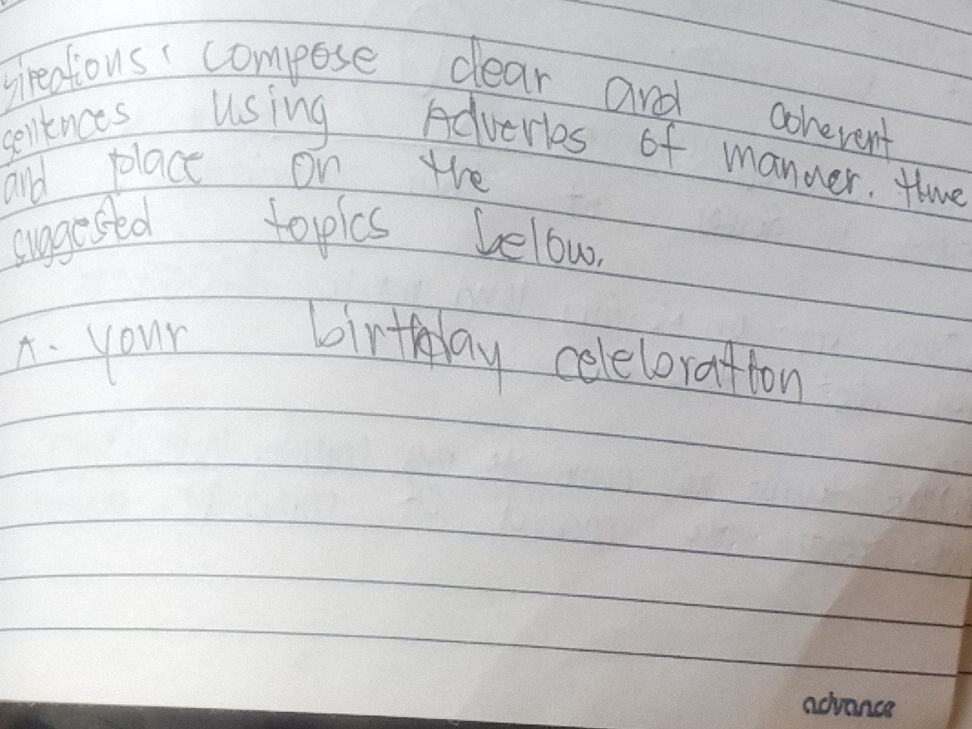 Directions: compose clear and coherent
sentences using Adverbs of manner. time
and place on the
suggested topics below.
A. your birthday celebration
advance